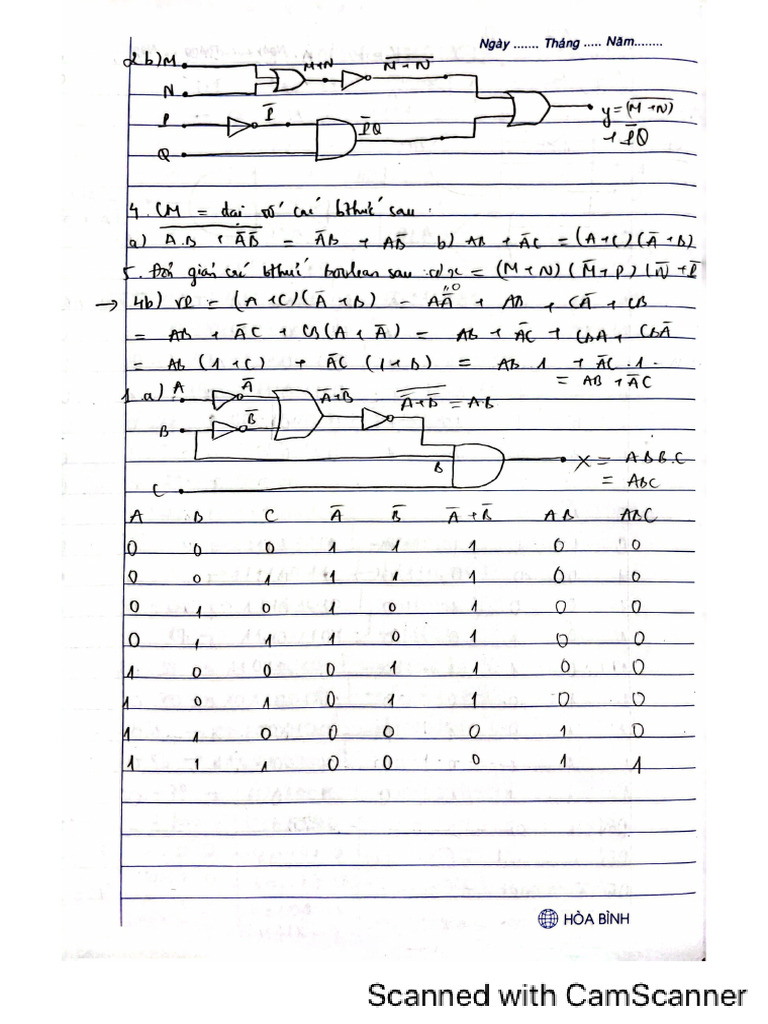 Ngày ....... Tháng ..... Năm........
2b) M M+N \overline{M+N}
N
P \bar{P} \bar{P}Q y = (\overline{M+N}) + \bar{P}Q
Q
4. CM = đại số các bthức sau:
a) \overline{A.B + \bar{A}\bar{B}} = \bar{A}B + A\bar{B} b) AB + \bar{A}C = (A+C)(\bar{A}+B)
5. Đơn giản các bthức boolean sau: a) x = (M+N)(\bar{M}+P)(\bar{N}+\bar{P}
→ 4b) VP = (A+C)(\bar{A}+B) = A\bar{A} "0 + AB + C\bar{A} + CB
= AB + \bar{A}C + CB(A+\bar{A}) = AB + \bar{A}C + CBA + CB\bar{A}
= AB (1+C) + \bar{A}C (1+B) = AB.1 + \bar{A}C.1.
= AB + \bar{A}C
1.a) A \bar{A} \bar{A}+\bar{B} \overline{\bar{A}+\bar{B}} = AB
B \bar{B}
B X = ABB.C
= ABC
C
A B C \bar{A} \bar{B} \bar{A}+\bar{B} AB ABC
0 0 0 1 1 1 0 0
0 0 1 1 1 1 0 0
0 1 0 1 0 1 0 0
0 1 1 1 0 1 0 0
1 0 0 0 1 1 0 0
1 0 1 0 1 1 0 0
1 1 0 0 0 0 1 0
1 1 1 0 0 0 1 1
HÒA BÌNH
Scanned with CamScanner